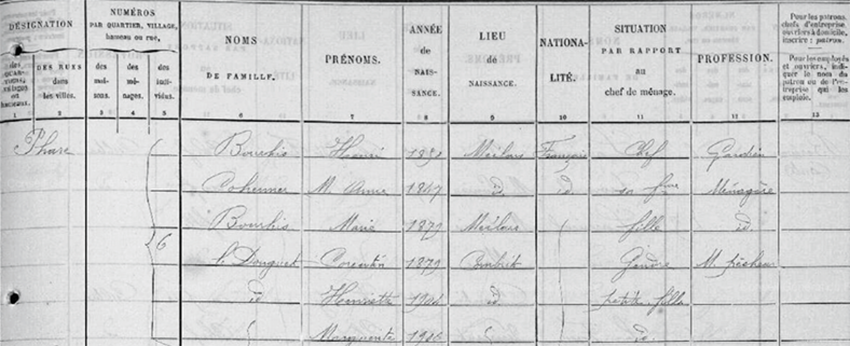 DÉSIGNATION
des QUARTIERS, villages ou hameaux.
DES RUES dans les villes.
NUMÉROS
PAR QUARTIER, VILLAGE, hameau ou rue,
des maisons.
des ménages.
des individus.
NOMS DE FAMILLE.
PRÉNOMS.
ANNÉE de NAISSANCE.
LIEU de NAISSANCE.
NATIONALITÉ.
SITUATION PAR RAPPORT au chef de ménage.
PROFESSION.
Pour les patrons, chefs d'entreprise, ouvriers à domicile, inscrire : patron.
Pour les employés et ouvriers, indiquer le nom du patron ou de l'entreprise qui les emploie.
1 2 3 4 5 6 7 8 9 10 11 12 13
Phare Bourhis Henri Française Chef Gardien
M. Anne id id sa fme Ménagère
Bourhis Marie 1879 fille id
6 Corentin 1879 Gendre M. pêcheur
id Henriette 1904 id petite fille
Marguerite 1906 id